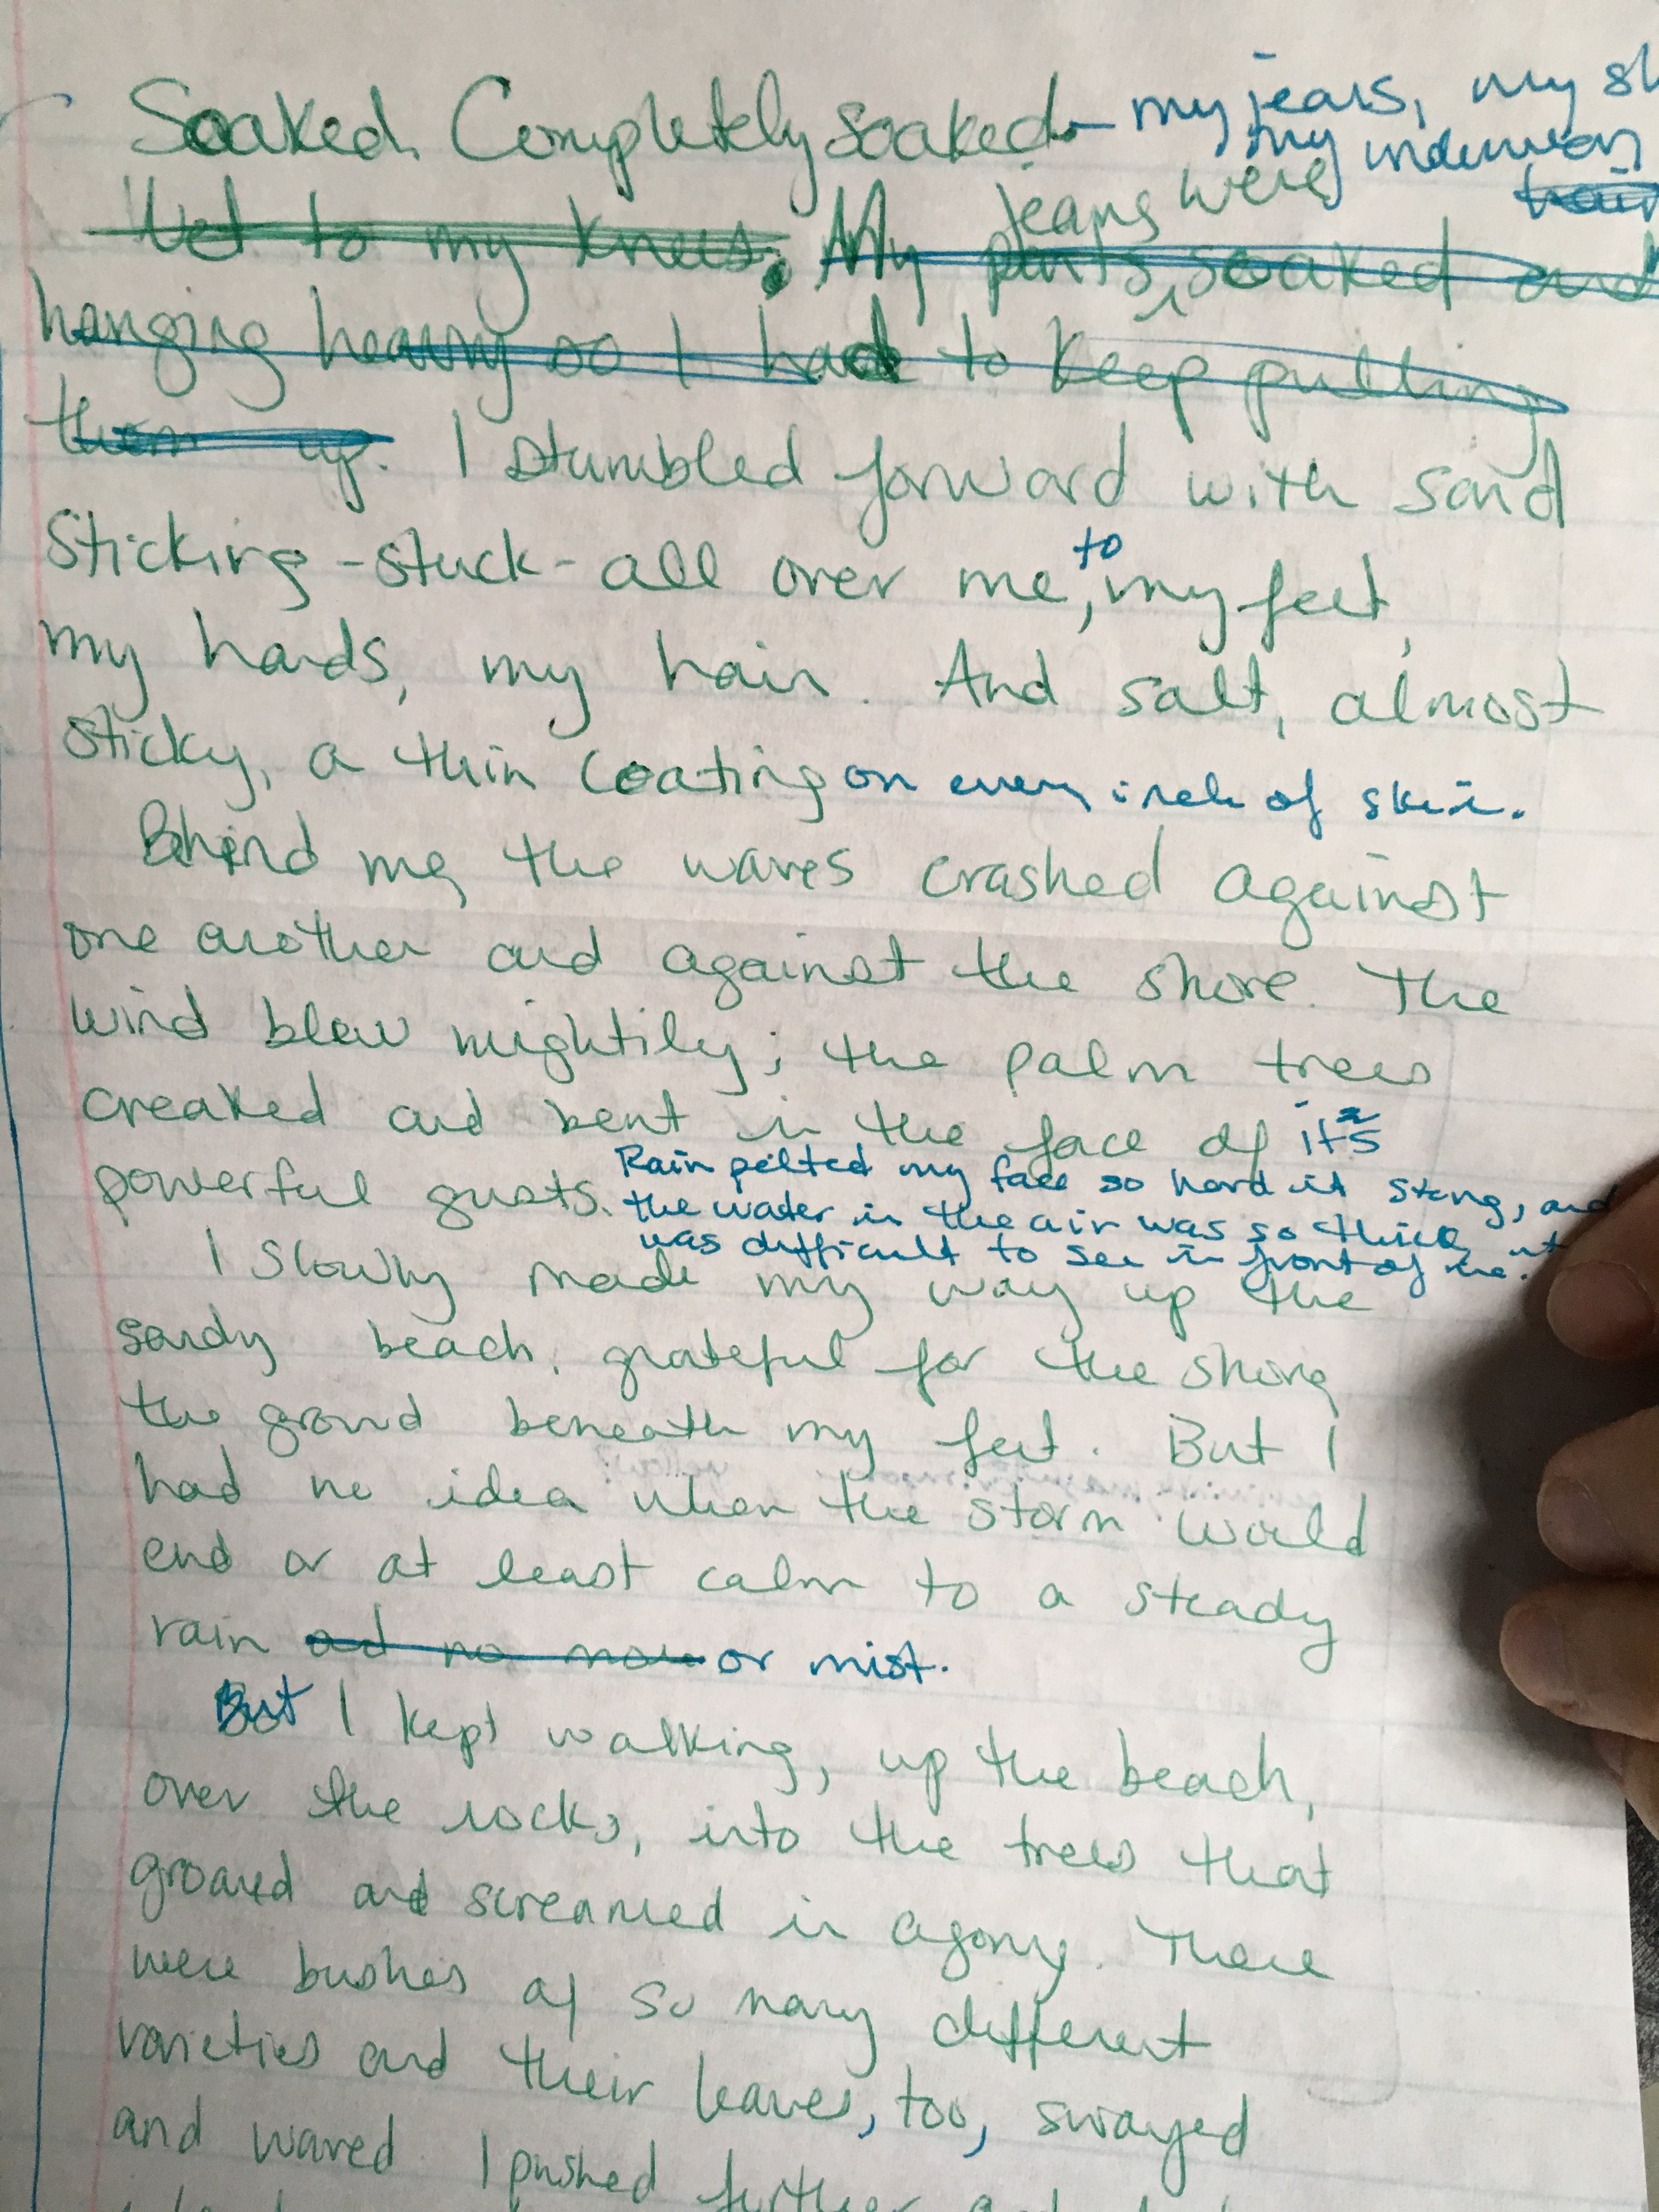 Soaked. Completely soaked - my jeans, my
my underwear,
hair
Wet to my knees. My pants soaked and
jeans were
hanging heavy so I had to keep pulling
them up. I stumbled forward with sand
sticking - stuck - all over me, to my feet,
my hands, my hair. And salt, almost
sticky, a thin coating on every inch of skin.
Behind me, the waves crashed against
one another and against the shore. The
wind blew mightily; the palm trees
creaked and bent in the face of its
powerful gusts. Rain pelted my face so hard it stung, and
the water in the air was so thick, it
was difficult to see in front of me.
I slowly made my way up the
sandy beach, grateful for the shore,
the ground beneath my feet. But I
had no idea when the storm would
end or at least calm to a steady
rain and no more or mist.
But I kept walking, up the beach,
over the rocks, into the trees that
groaned and screamed in agony. There
were bushes of so many different
varieties and their leaves, too, swayed
and waved. I pushed further